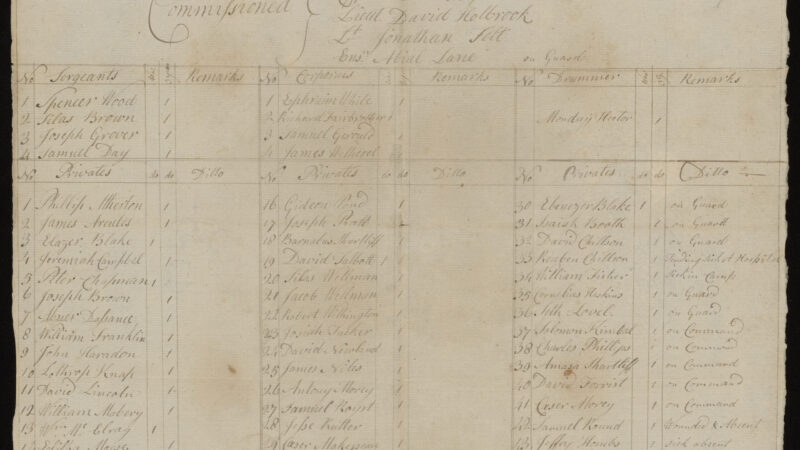 Commissioned
Lieut David Holbrook
Lt Jonathan
Ens. Abial Lane on Guard
No Sergeants Remarks No Corporals Remarks No Drummer Remarks
1 Spencer Wood 1 1 Ephraim White 1
2 Silas Brown 1 2 Richard Fairbrother 1 Monday Hector 1
3 Joseph Grover 1 3 Samuel Gerould 1
4 Samuel Day 1 4 James
No Privates do do Ditto No Privates do do Ditto No Privates do do Ditto
1 Phillip Atherton 1 16 Gideon Pond 1 30 Ebenezer Blake 1 on Guard
2 James 1 17 Joseph Pratt 31 Isaiah Booth 1 on Guard
3 Elazer Blake 1 18 Barnabas Shurtliff 1 32 David Chitson 1 on Guard
4 Jeremiah Campbel 1 19 David Talbott 1 33 Reuben Chillon 1 Tending Sick at Hospital
5 Peter Chapman 1 20 Silas Wellman 1 34 William Fisher 1 Sick in Camp
6 Joseph Brown 1 21 Jacob Wellman 1 35 Cornelius Haskins 1 on Guard
7 Abner 1 22 Robert Withington 1 36 Seth Lovel 1 on Guard
8 William Franklin 1 23 Josiah Tucker 1 37 Solomon Kimbel 1 on Command
9 John Haradon 1 24 David Newland 1 38 Charles Phillips 1 on Command
10 Lothrop Knap 1 25 James Niles 1 39 Amasa Shurtliff 1 on Command
11 David Lincoln 1 26 Antony Morey 1 40 David 1 on Command
12 William Mabery 1 27 Samuel 1 41 Ceser Morey 1 on Command
13 Wm Mc Elray 1 28 Jesse 1 42 Samuel Round 1 Wounded & Absent
29 Ceser 1 43 Jeffry Hombs 1 Sick absent